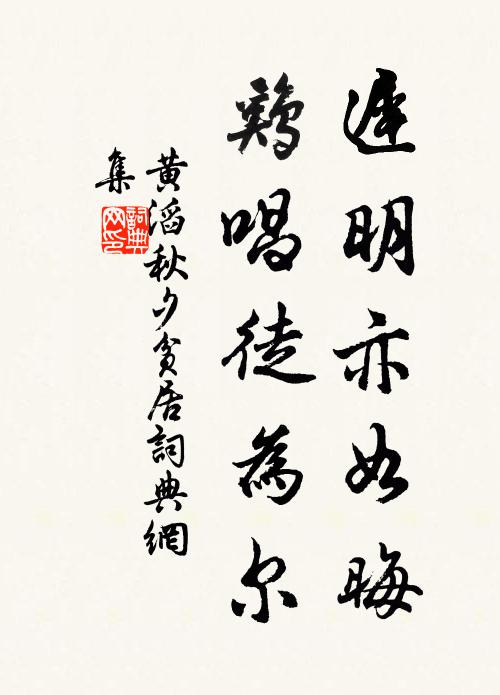 遲明亦如晦
鷄唱徒為尔
黄滔秋夕貧居詞典網
集
詞典网印